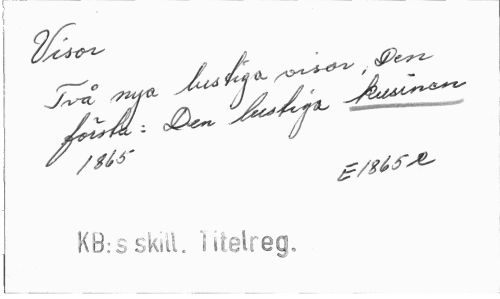 Visor
Två nya lustiga visor, Den
första: Den lustiga kusinen
1865
E 1865 e
KB:s skill. Titelreg.